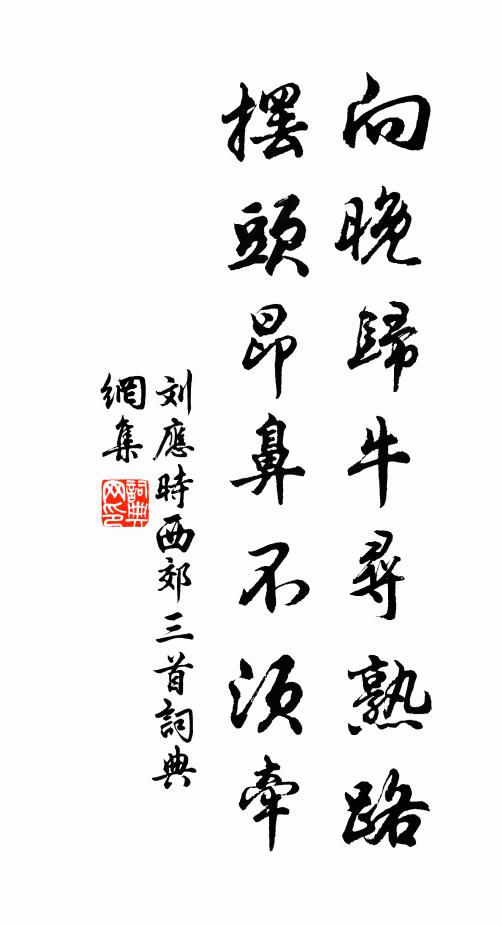 向晚歸牛尋熟路
擺頭昂鼻不須牽
刘應時西郊三首詞典
網集
詞典網印